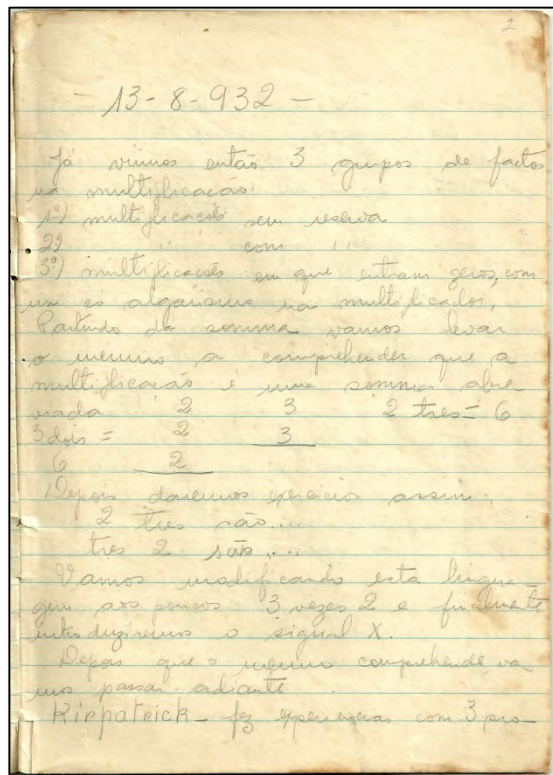 2
- 13-8-932 -
Já vimos então 3 grupos de factos
na multiplicação:
1º) multiplicações sem reserva
2º) " com "
3º) multiplicações em que entram zeros, com
um só algarismo no multiplicador,
Partindo da somma vamos levar
o menino a comprehender que a
multiplicação é uma somma abre
viada 2 3 2 tres = 6
3 dois = 2 3
6 2
Depois daremos exercicio assim:
2 tres são....
tres 2 são....
Vamos modificando esta lingua-
gem aos poucos 3 vezes 2 e finalmente
introduziremos o signal X.
Depois que o menino comprehende va
mos passar adiante
Kirpatrick - fez experiencias com 3 pro-